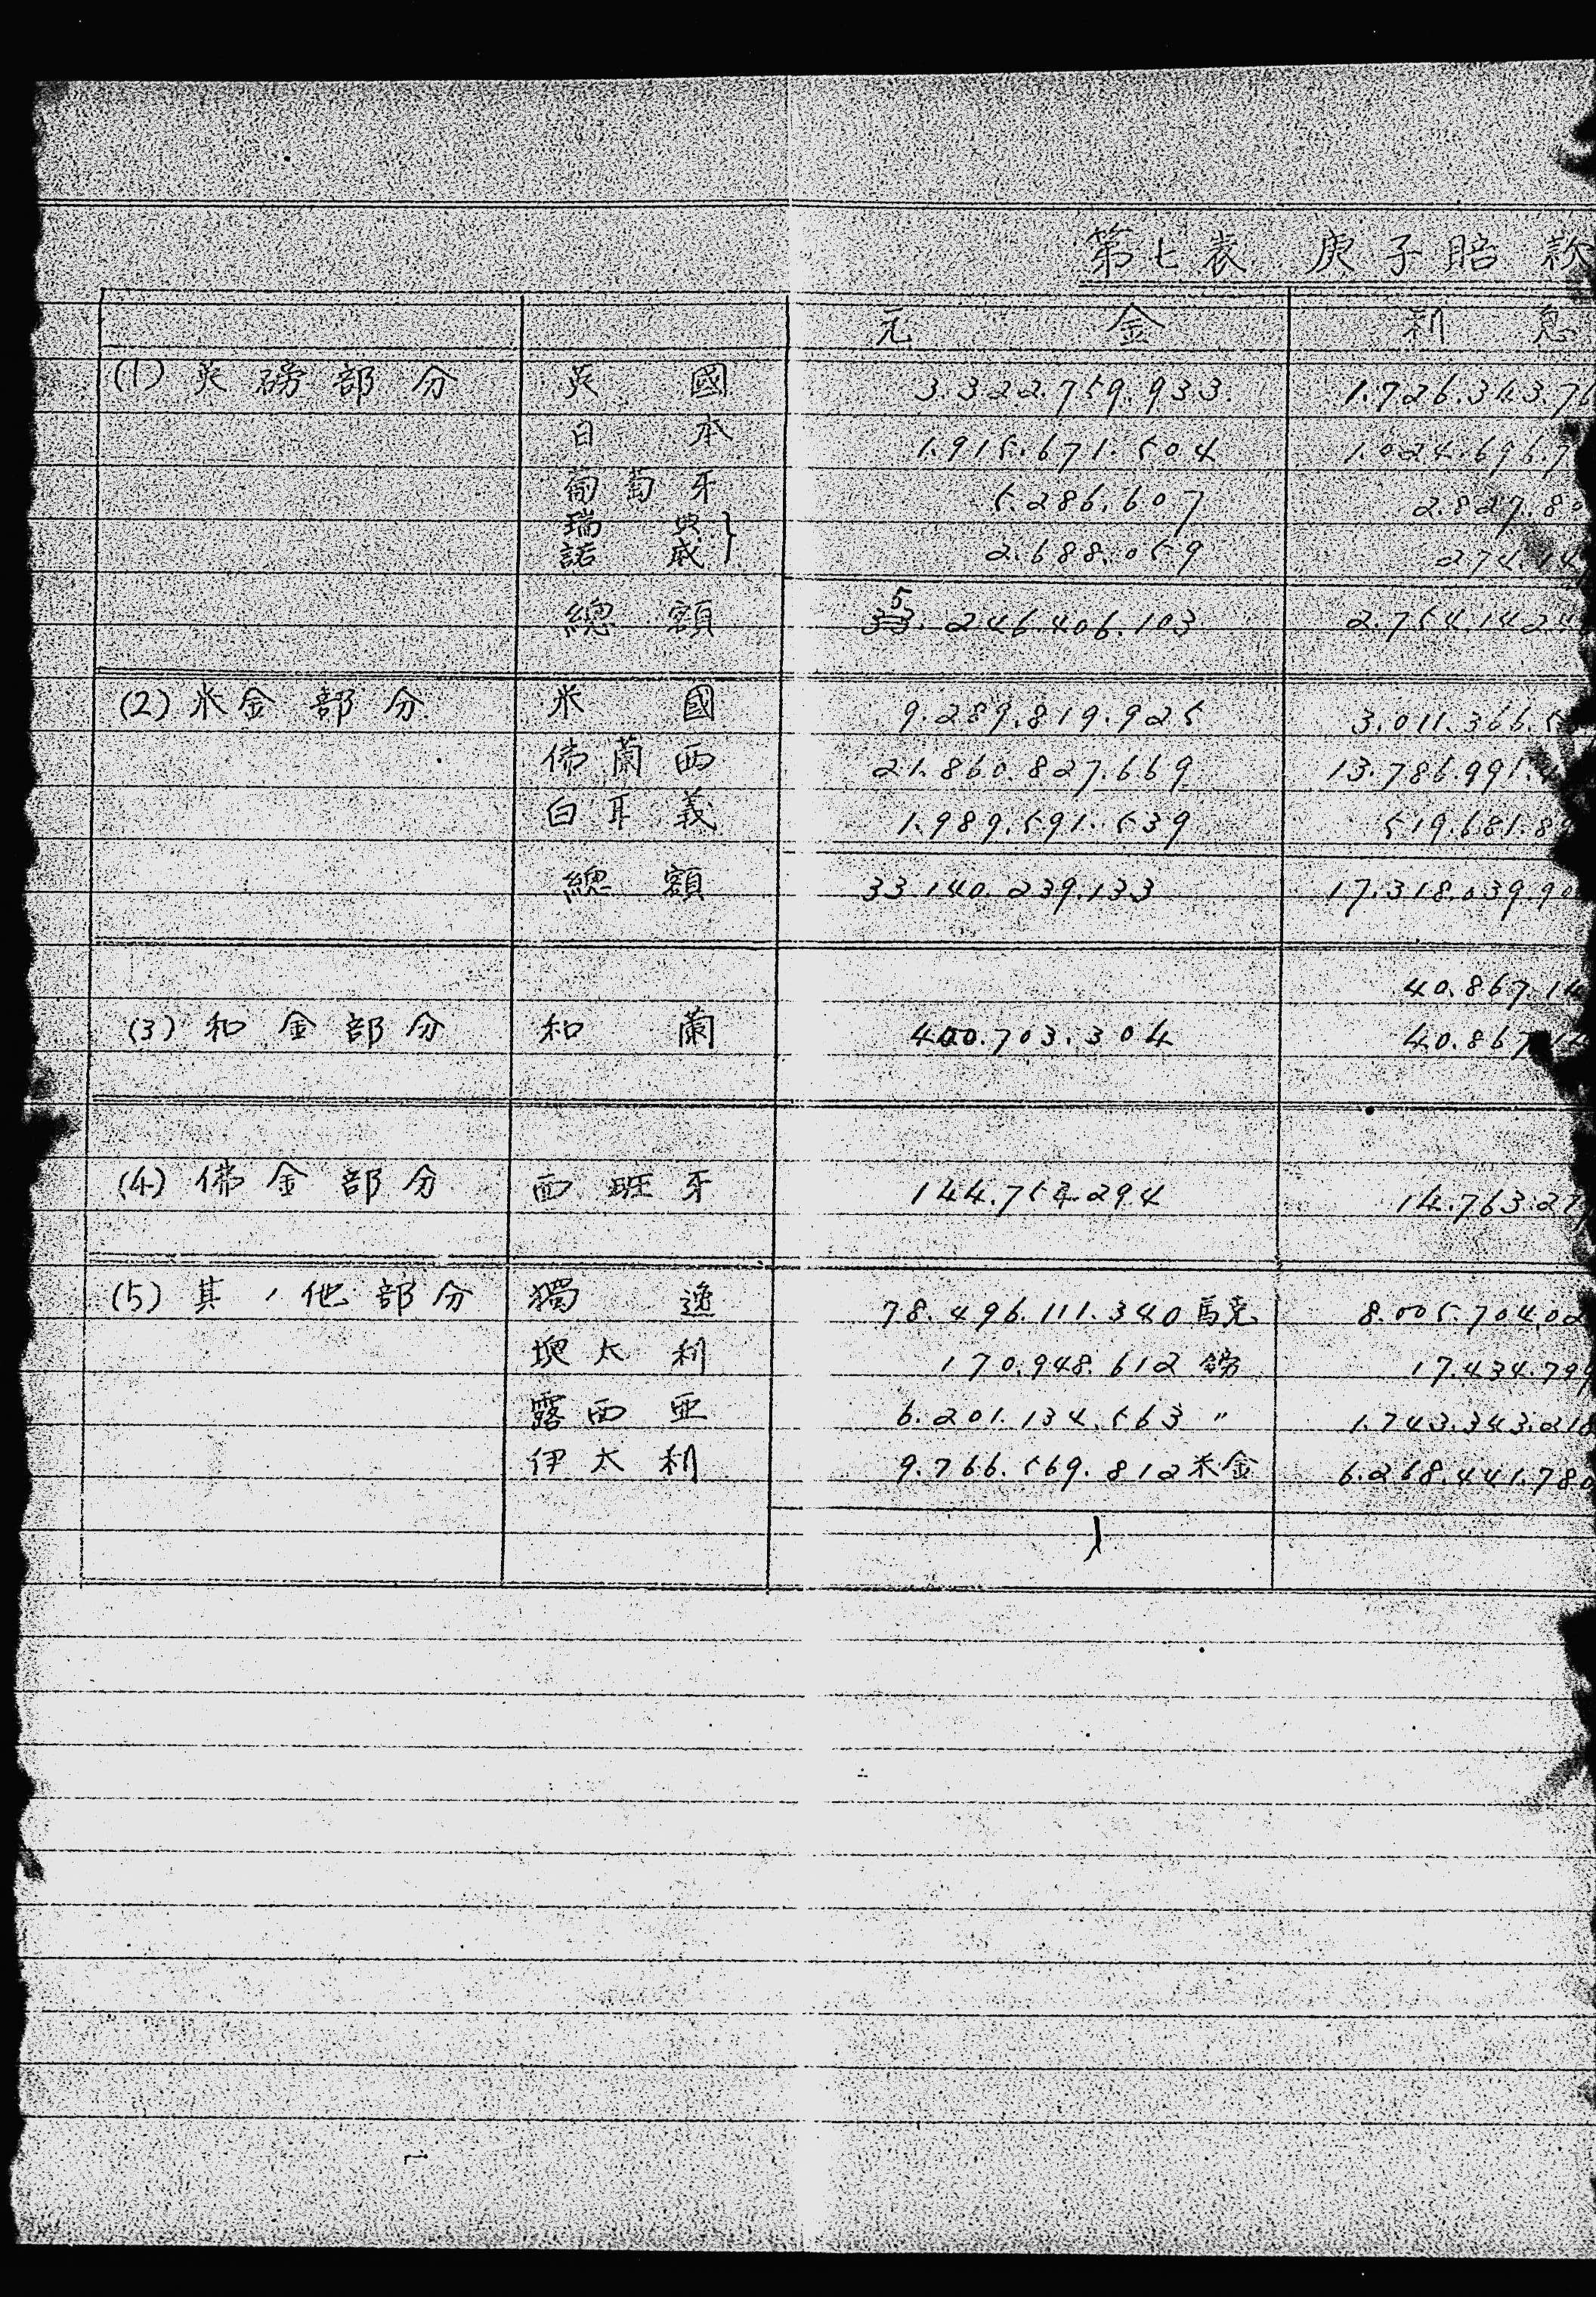 第七表 庚子賠款
元金 利息
(1) 英磅部分 英國 3.322.759.933. 1.726.343.76
日本 1.915.671.504 1.024.696.7
葡萄牙 5.286.607 2.827.80
瑞典 諾威 } 2.688.059 274.14
總額 5.246.406.103 2.754.142.4
(2) 米金部分 米國 9.289.819.925 3.011.366.5
佛蘭西 21.860.827.669 13.786.991.
白耳義 1.989.591.539 519.681.8
總額 33.140.239.133 17.318.039.90
40.867.14
(3) 和金部分 和蘭 400.703.304 40.867.14
(4) 佛金部分 西班牙 144.754.294 14.763.27
(5) 其ノ他部分 獨逸 78.496.111.340 馬克 8.005.704.02
墺太利 170.948.612 鎊 17.434.799
露西亜 6.201.134.563 〃 1.743.343.210
伊太利 9.766.569.812 米金 6.268.441.780